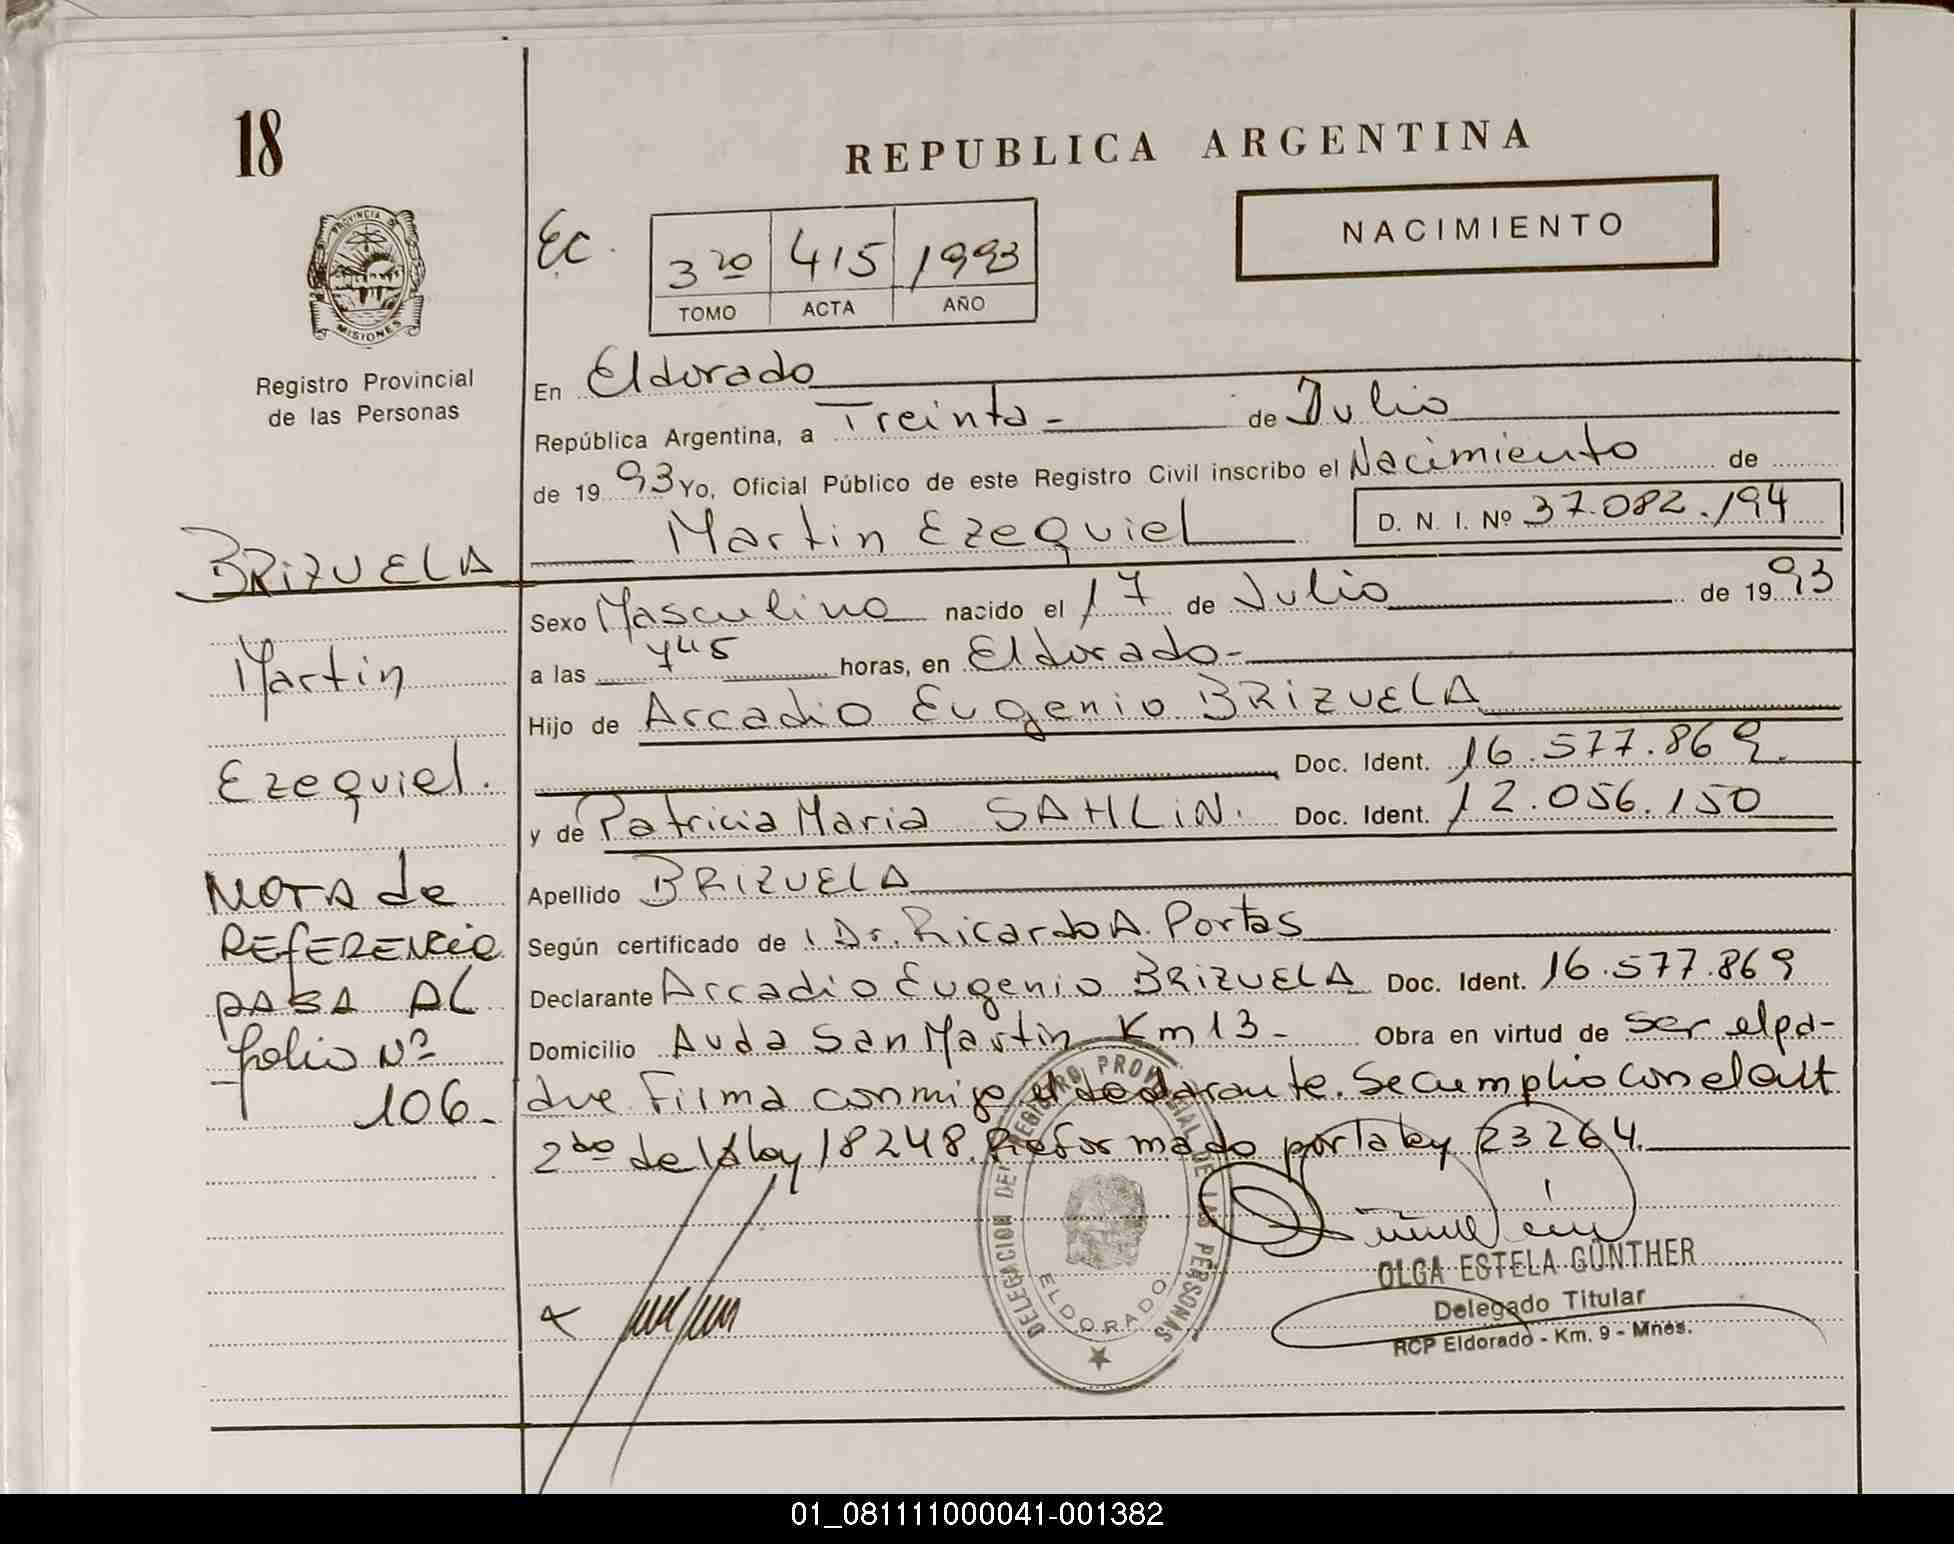 18
REPUBLICA ARGENTINA
PROVINCIA DE MISIONES
Registro Provincial
de las Personas
EC.
3ro 415 1993
TOMO ACTA AÑO
NACIMIENTO
En Eldorado
República Argentina, a Treinta - de Julio
de 1993 Yo, Oficial Público de este Registro Civil inscribo el Nacimiento de
Martin Ezequiel D. N. I. Nº 37.082.194
BRIZUELA
Martin
Ezequiel.
NOTA de
REFERENCIA
PASA AL
folio Nº
106-
Sexo Masculino nacido el 17 de Julio de 1993
a las 745 horas, en Eldorado-
Hijo de Arcadio Eugenio BRIZUELA
Doc. Ident. 16.577.869.
y de Patricia Maria SAHLIN. Doc. Ident. 12.056.150
Apellido BRIZUELA
Según certificado de Dr. Ricardo A. Portas
Declarante Arcadio Eugenio BRIZUELA Doc. Ident. 16.577.869
Domicilio Avda San Martin Km 13- Obra en virtud de ser el pa-
dre Firma conmigo el declarante. Se cumplio con el art
2do de la ley 18248. Reformado por la ley 23264.
DELEGACION DEL REGISTRO PROVINCIAL DE LAS PERSONAS
ELDORADO
OLGA ESTELA GÜNTHER
Delegado Titular
RCP Eldorado - Km. 9 - Mnes.
01_081111000041-001382